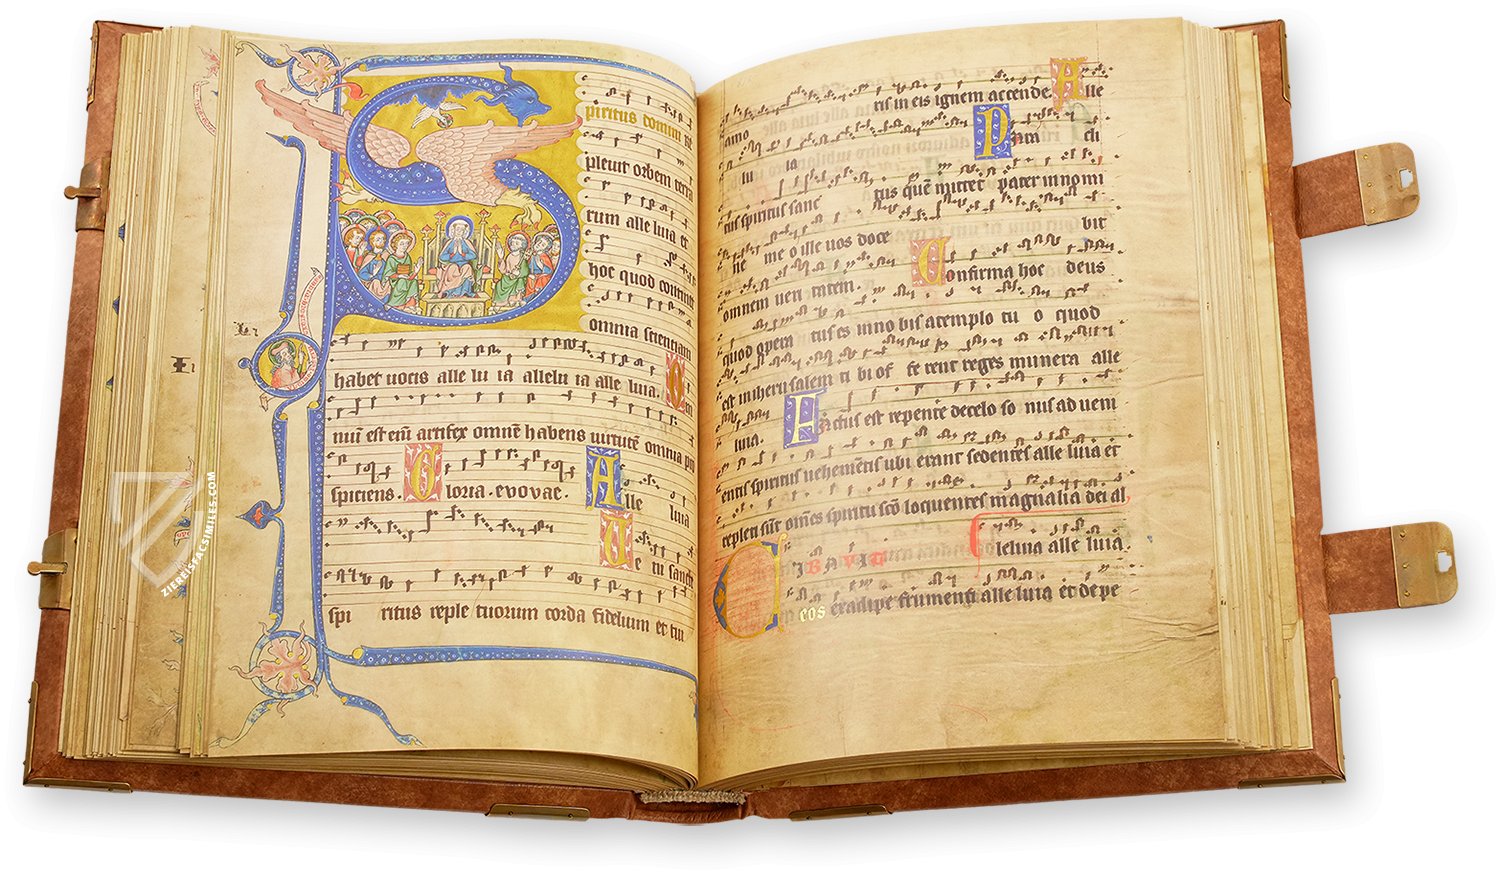 Spiritus domini re
pleuit orbem terra
rum alle luia et
hoc quod continet
omnia scientiam
habet uocis alle lu ia allelu ia alle luia. O
mniū est eiū artifex omnē habens uirtutē omnia pro
spiciens. Gloria. evovae. Alle luia
Ue ni sancte
spi ritus reple tuorum corda fidelium et tui
amo tis in eis ignem accende Alle
lu ia Para cli
tus spiritus sanc tus quē mittet pater in nomi
ne me o ille uos doce bit
omnem ueri tatem. Confirma hoc deus
quod opera tus es in no bis a templo tu o quod
est in iheru salem ti bi of fe rent reges munera alle
luia. Factus est repente de celo so nus ad uem
entis spiritus uehementis ubi erant sedentes alle luia et
repleti sūt omēs spiritu scō loquentes magnalia dei al
leluia alle luia.
CIBAVIT
eos ex adipe frumenti alle luia et de pe
ZIEREIS FACSIMILES.COM